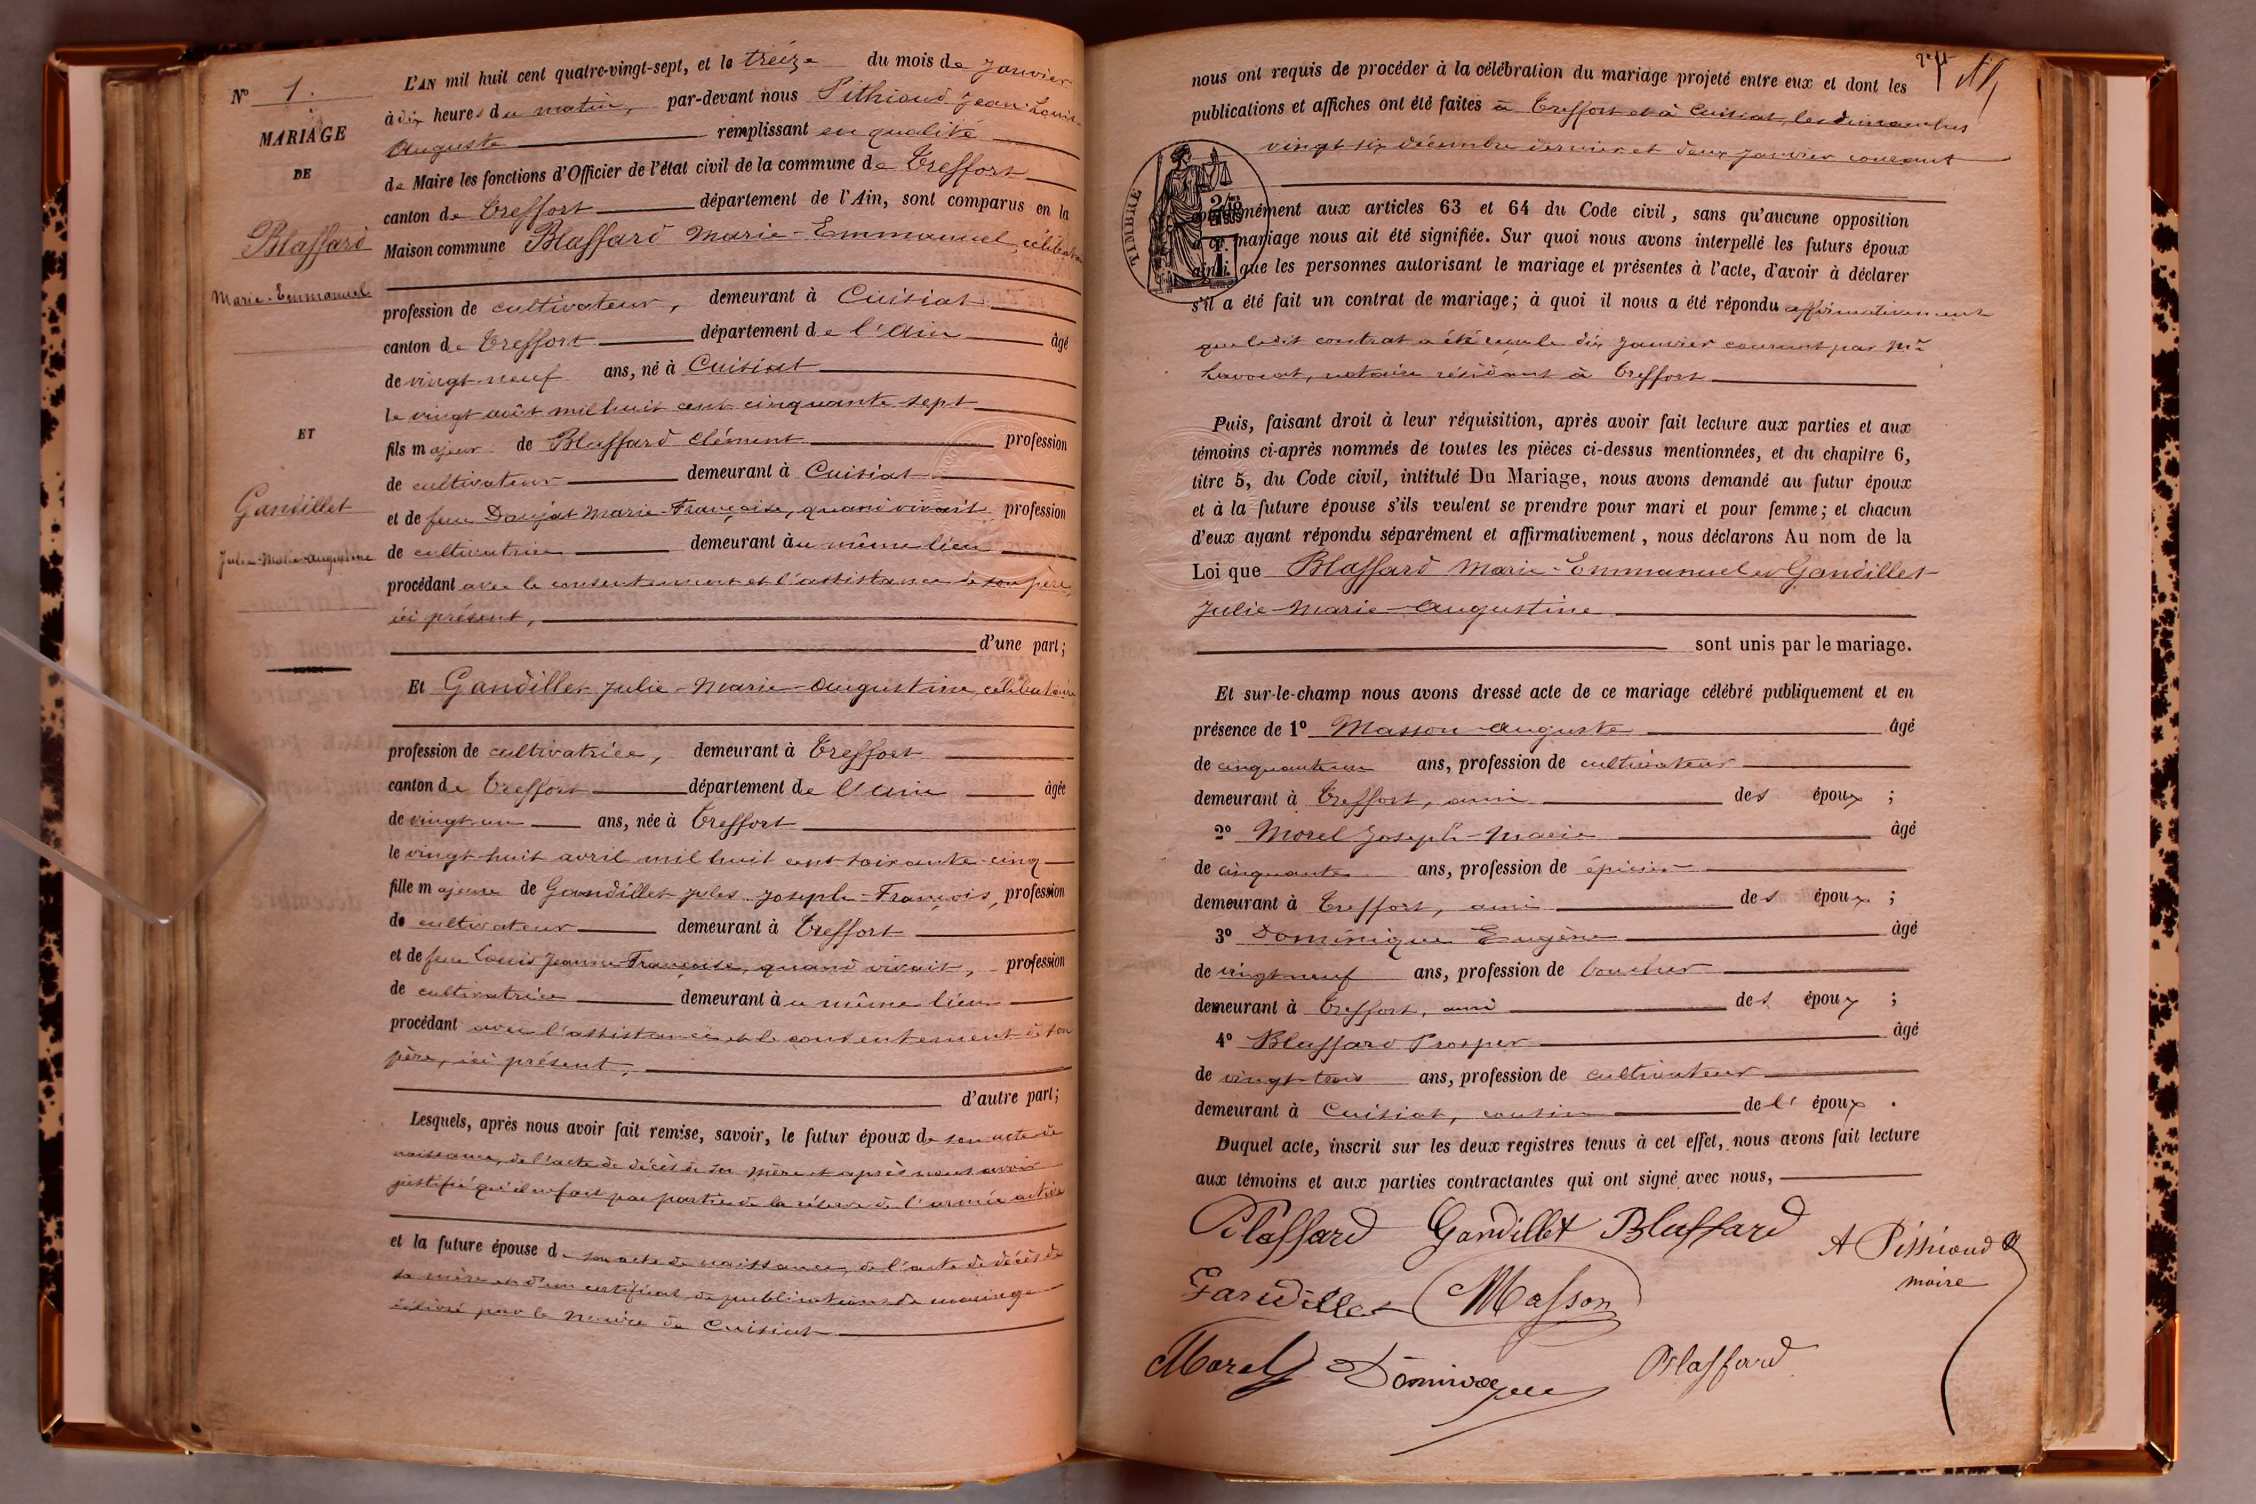 N° 1.
MARIAGE
DE
Blaffard
Marie-Emmanuel
ET
Gandillet
Julie-Marie-Augustine
L'AN mil huit cent quatre-vingt-sept, et le treize du mois de Janvier
à dix heures du matin, par-devant nous Pithioud Jean-Louis-
Auguste remplissant en qualité
de Maire les fonctions d'Officier de l'état civil de la commune de Treffort
canton de Treffort département de l'Ain, sont comparus en la
Maison commune Blaffard Marie-Emmanuel, célibataire
profession de cultivateur, demeurant à Cuisiat
canton de Treffort département de l'Ain âgé
de vingt-neuf ans, né à Cuisiat
le vingt août mil huit cent cinquante-sept
fils majeur de Blaffard Clément profession
de cultivateur demeurant à Cuisiat
et de feue Doujat Marie-Françoise, quand vivait profession
de cultivatrice demeurant au même lieu
procédant avec le consentement et l'assistance de son père,
ici présent,
d'une part;
Et Gandillet Julie-Marie-Augustine, célibataire
profession de cultivatrice, demeurant à Treffort
canton de Treffort département de l'Ain âgée
de vingt-un ans, née à Treffort
le vingt-huit avril mil huit cent soixante-cinq
fille majeure de Gandillet Jules-Joseph-François, profession
de cultivateur demeurant à Treffort
et de feue Louis Jeanne-Françoise, quand vivait, profession
de cultivatrice demeurant au même lieu
procédant avec l'assistance et le consentement de son
père, ici présent,
d'autre part;
Lesquels, après nous avoir fait remise, savoir, le futur époux de son acte de
naissance, de l'acte de décès de sa mère et après nous avoir
justifié qu'il ne fait pas partie de la réserve de l'armée active
et la future épouse de son acte de naissance, de l'acte de décès de
sa mère et d'un certificat de publications de mariage
délivré par la mairie de Cuisiat
nous ont requis de procéder à la célébration du mariage projeté entre eux et dont les
publications et affiches ont été faites à Treffort et à Cuisiat, les dimanches
vingt-six décembre dernier et deux janvier courant
TIMBRE
conformément aux articles 63 et 64 du Code civil, sans qu'aucune opposition
à ce mariage nous ait été signifiée. Sur quoi nous avons interpellé les futurs époux
ainsi que les personnes autorisant le mariage et présentes à l'acte, d'avoir à déclarer
s'il a été fait un contrat de mariage; à quoi il nous a été répondu affirmativement
que ledit contrat a été reçu le dix Janvier courant par Me
Lavocat, notaire résidant à Treffort
Puis, faisant droit à leur réquisition, après avoir fait lecture aux parties et aux
témoins ci-après nommés de toutes les pièces ci-dessus mentionnées, et du chapitre 6,
titre 5, du Code civil, intitulé Du Mariage, nous avons demandé au futur époux
et à la future épouse s'ils veulent se prendre pour mari et pour femme; et chacun
d'eux ayant répondu séparément et affirmativement, nous déclarons Au nom de la
Loi que Blaffard Marie-Emmanuel et Gandillet
Julie-Marie-Augustine
sont unis par le mariage.
Et sur-le-champ nous avons dressé acte de ce mariage célébré publiquement et en
présence de 1° Masson Auguste âgé
de cinquante-un ans, profession de cultivateur
demeurant à Treffort, ami des époux ;
2° Morel Joseph-Marie âgé
de cinquante ans, profession de épicier
demeurant à Treffort, ami des époux ;
3° Dominique Eugène âgé
de vingt-neuf ans, profession de boucher
demeurant à Treffort, ami des époux ;
4° Blaffard Prosper âgé
de vingt-trois ans, profession de cultivateur
demeurant à Cuisiat, cousin de l'époux .
Duquel acte, inscrit sur les deux registres tenus à cet effet, nous avons fait lecture
aux témoins et aux parties contractantes qui ont signé avec nous,
Blaffard Gandillet Blaffard
A Pithioud
maire
Gandillet Masson
Morel Dominique Blaffard